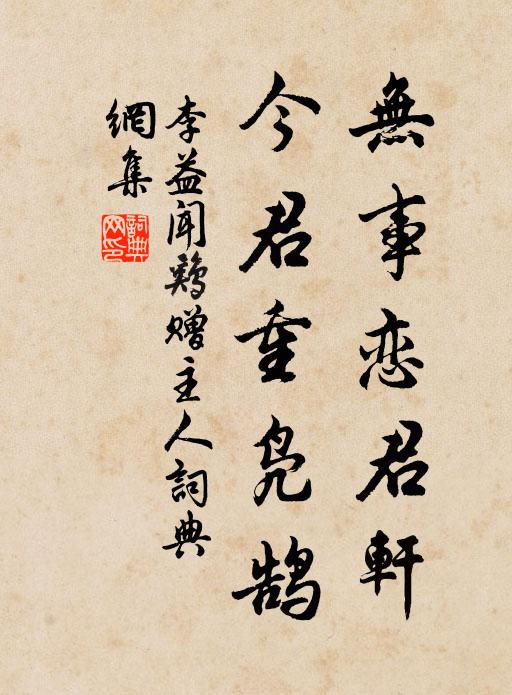 無事恋君軒
今君重凫鹄
李益闻鷄赠主人詞典
網集
詞典网印